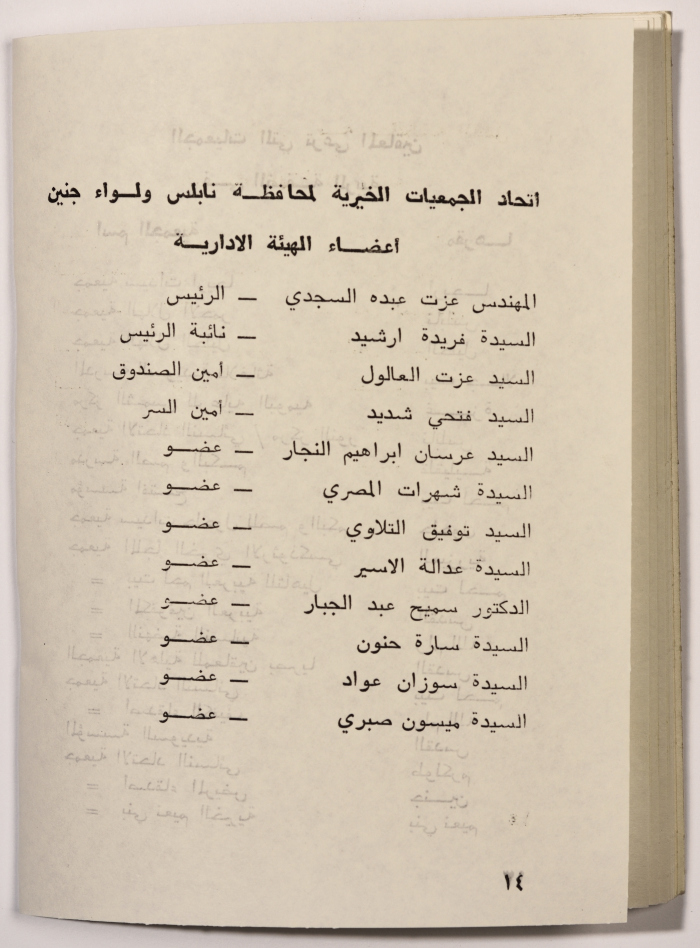 اتحاد الجمعيات الخيرية لمحافظة نابلس ولواء جنين
أعضاء الهيئة الادارية
المهندس عزت عبده السجدي — الرئيس
السيدة فريدة ارشيد — نائبة الرئيس
السيد عزت العالول — أمين الصندوق
السيد فتحي شديد — أمين السر
السيد عرسان ابراهيم النجار — عضو
السيدة شهرات المصري — عضو
السيد توفيق التلاوي — عضو
السيدة عدالة الاسير — عضو
الدكتور سميح عبد الجبار — عضو
السيدة سارة حنون — عضو
السيدة سوزان عواد — عضو
السيدة ميسون صبري — عضو
١٤